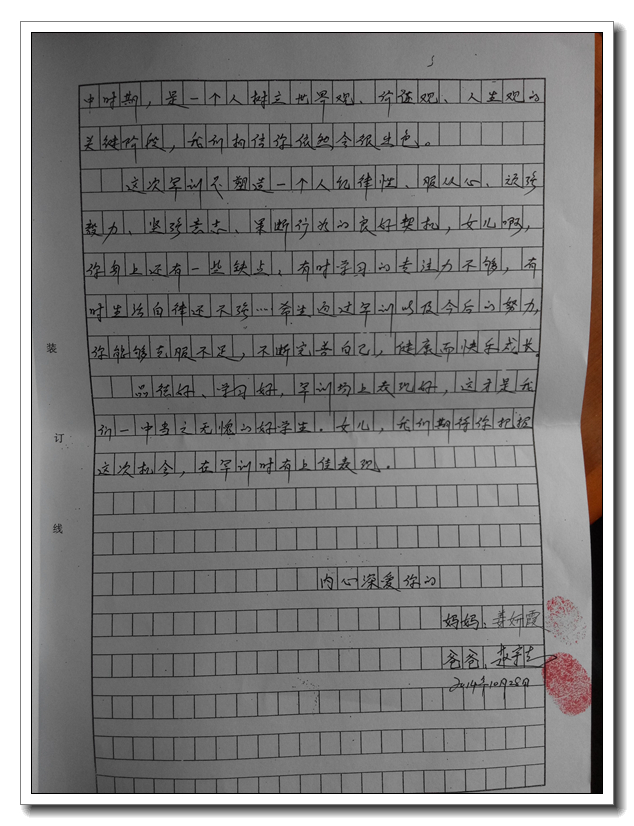 3
中时期，是一个人树立世界观、价值观、人生观的
关键阶段，我们相信你依然会很出色。
这次军训是塑造一个人纪律性、服从心、顽强
毅力、坚强意志、果断行为的良好契机，女儿啊，
你身上还有一些缺点、有时学习的专注力不够，有
时生活自律还不强…希望通过军训以及今后的努力，
你能够克服不足，不断完善自己，健康而快乐成长。
品德好、学习好，军训场上表现好，这才是我
们一中当之无愧的好学生。女儿，我们期待你把握
这次机会，在军训时有上佳表现。
内心深爱你的
妈妈：姜妍霞
爸爸：
2014年10月28日
装
订
线